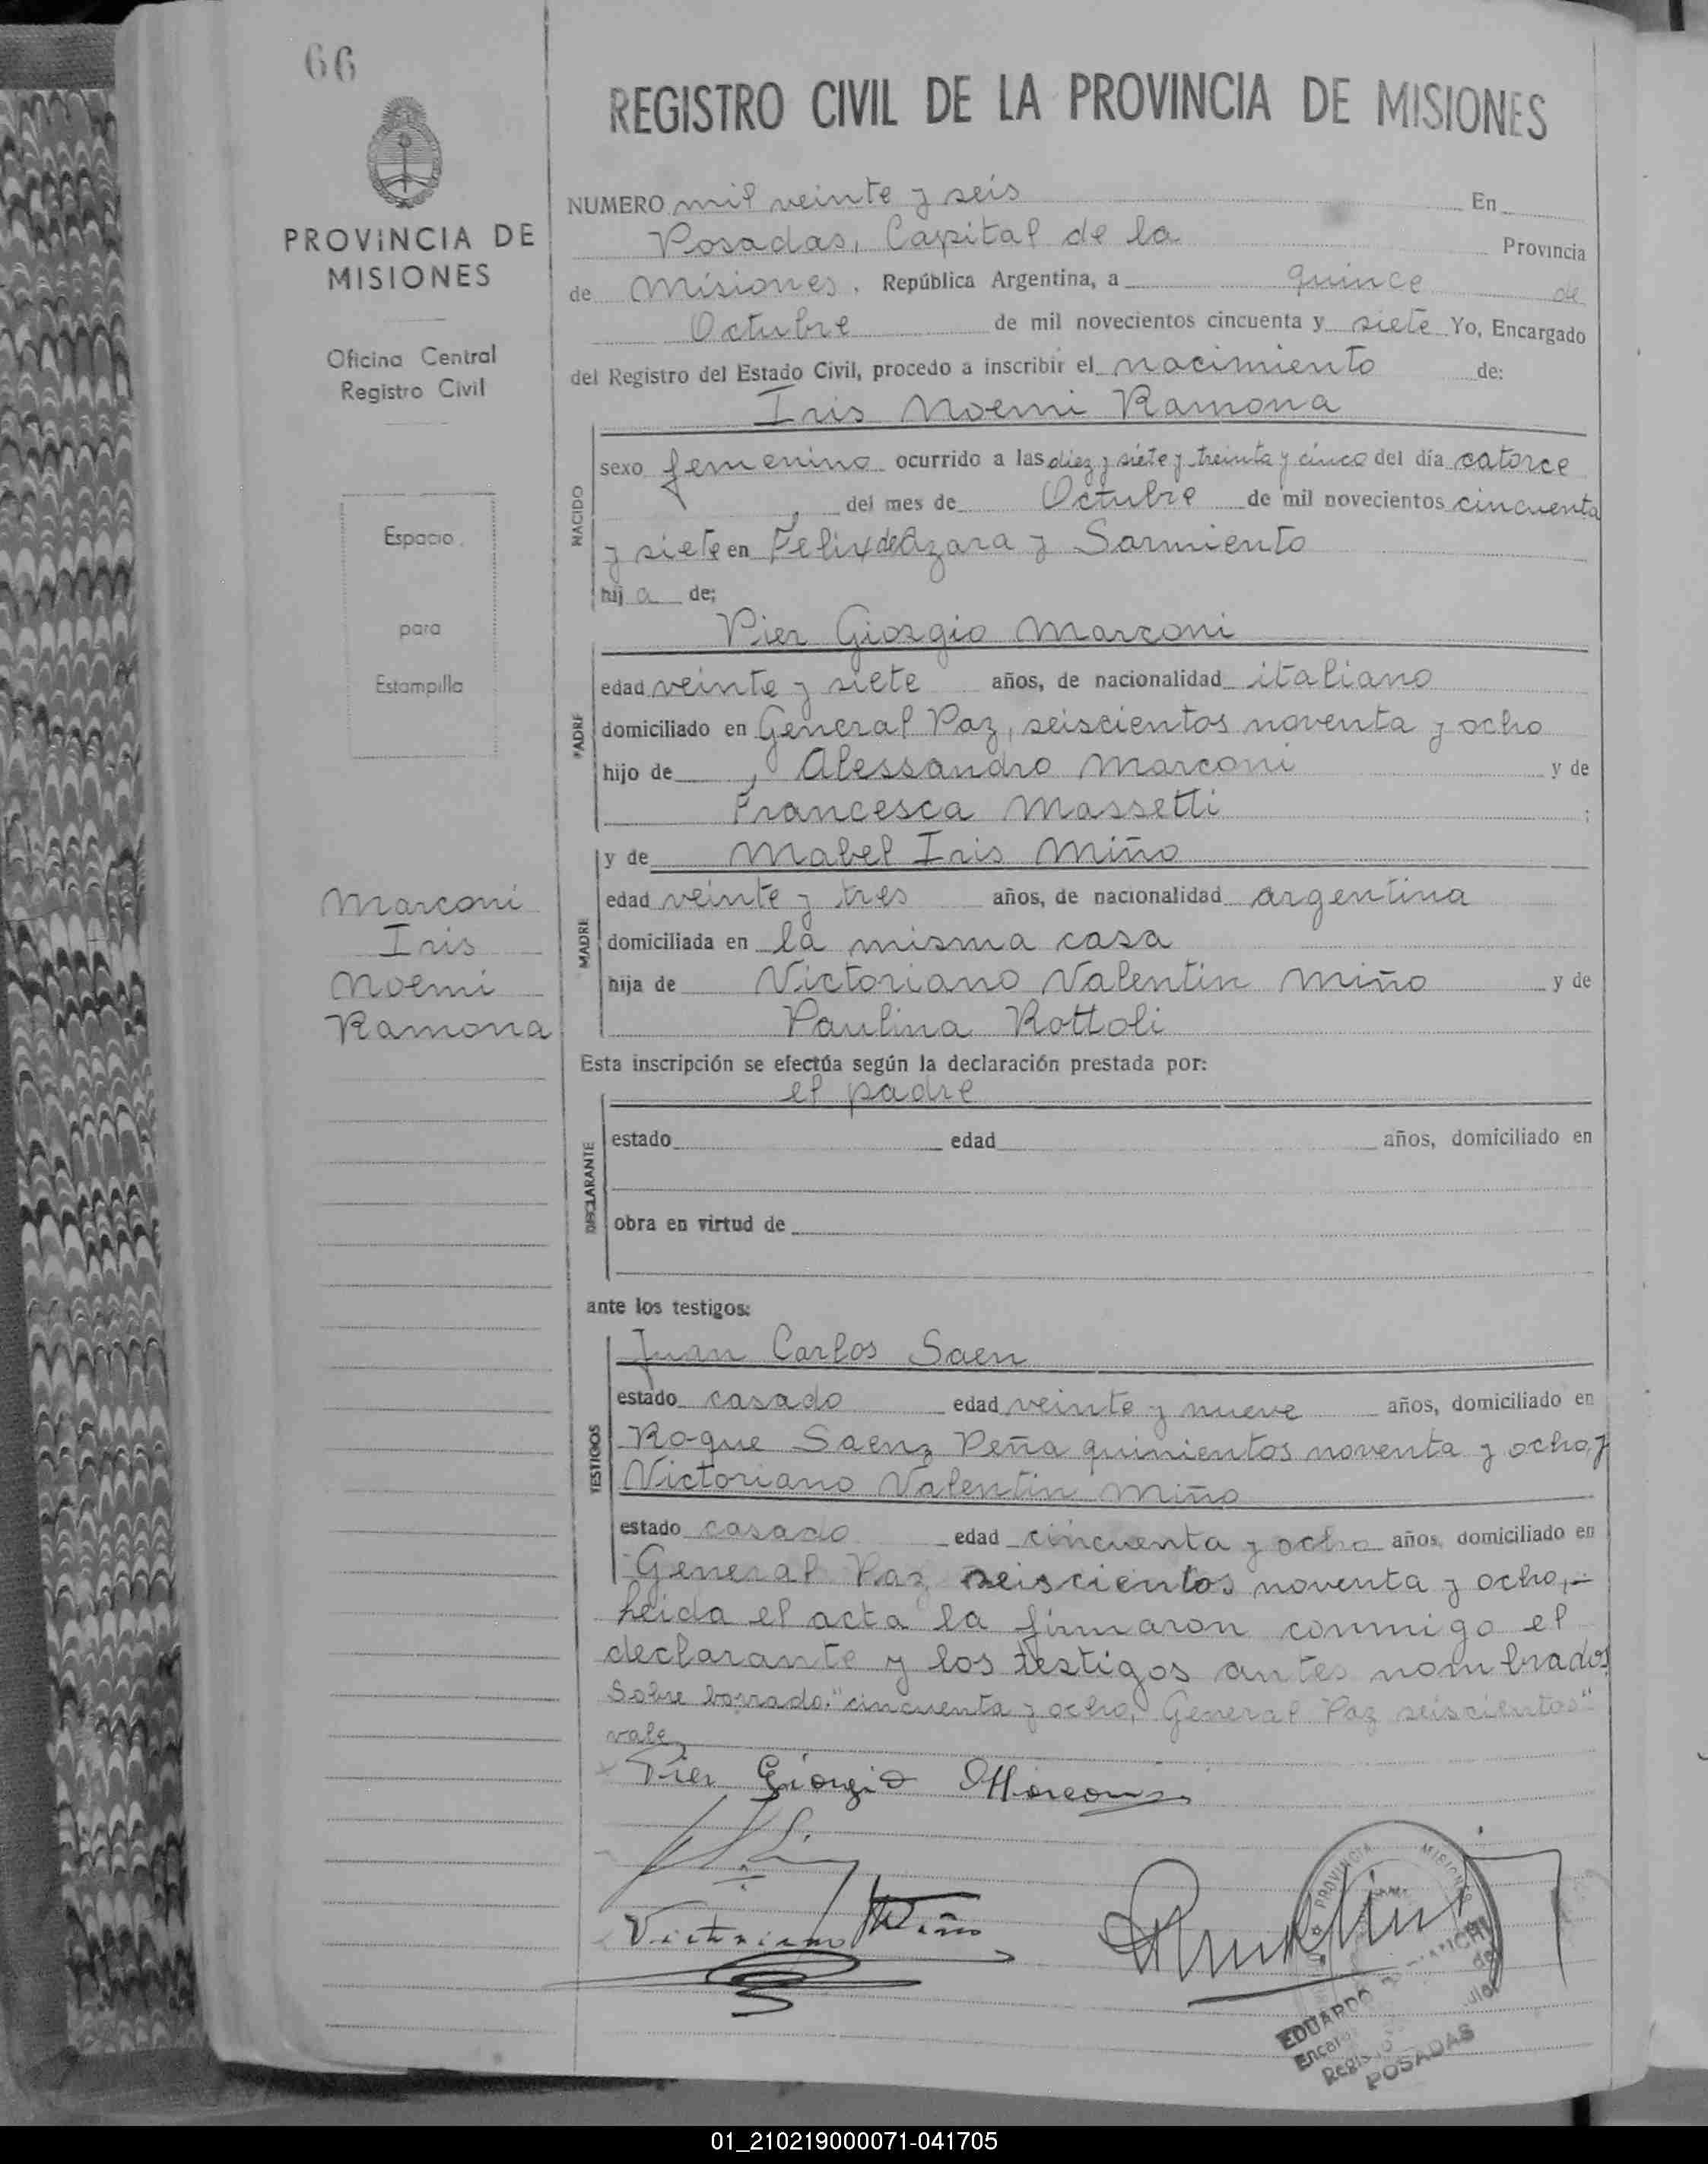 66
REGISTRO CIVIL DE LA PROVINCIA DE MISIONES
PROVINCIA DE
MISIONES
Oficina Central
Registro Civil
Espacio
para
Estampilla
Marconi
Iris
Noemi
Ramona
NUMERO mil veinte y seis En
Posadas, Capital de la Provincia
de Misiones, República Argentina, a quince de
Octubre de mil novecientos cincuenta y siete Yo, Encargado
del Registro del Estado Civil, procedo a inscribir el nacimiento de:
Iris Noemi Ramona
NACIDO
sexo femenino ocurrido a las diez y siete y treinta y cinco del día catorce
del mes de Octubre de mil novecientos cincuenta
y siete en Felix de Azara y Sarmiento
hij a de:
Pier Giorgio Marconi
PADRE
edad veinte y siete años, de nacionalidad italiano
domiciliado en General Paz, seiscientos noventa y ocho
hijo de Alessandro Marconi y de
Francesca Massetti
y de Mabel Iris Miño
MADRE
edad veinte y tres años, de nacionalidad argentina
domiciliada en la misma casa
hija de Victoriano Valentin Miño y de
Paulina Rottoli
Esta inscripción se efectúa según la declaración prestada por:
el padre
DECLARANTE
estado edad años, domiciliado en
obra en virtud de
ante los testigos:
Juan Carlos Saen
TESTIGOS
estado casado edad veinte y nueve años, domiciliado en
Roque Saenz Peña quinientos noventa y ocho, y
Victoriano Valentin Miño
estado casado edad cincuenta y ocho años, domiciliado en
General Paz seiscientos noventa y ocho,-
Leida el acta la firmaron conmigo el
declarante y los testigos antes nombrados
Sobre borrado: "cincuenta y ocho, General Paz seiscientos"
vale
Pier Giorgio Marconi
Victoriano Miño
PROVINCIA MISIONES
EDUARDO
POSADAS
01_210219000071-041705